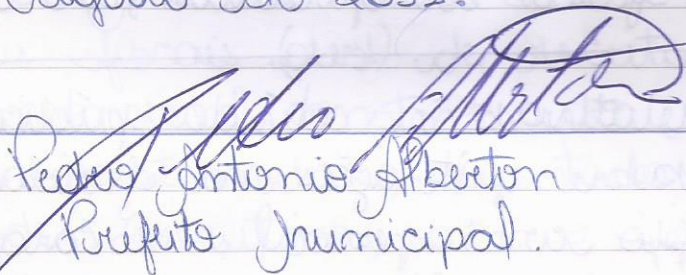 de 2011.
Pedro Alberton
Pedro Antonio Alberton
Prefeito Municipal.